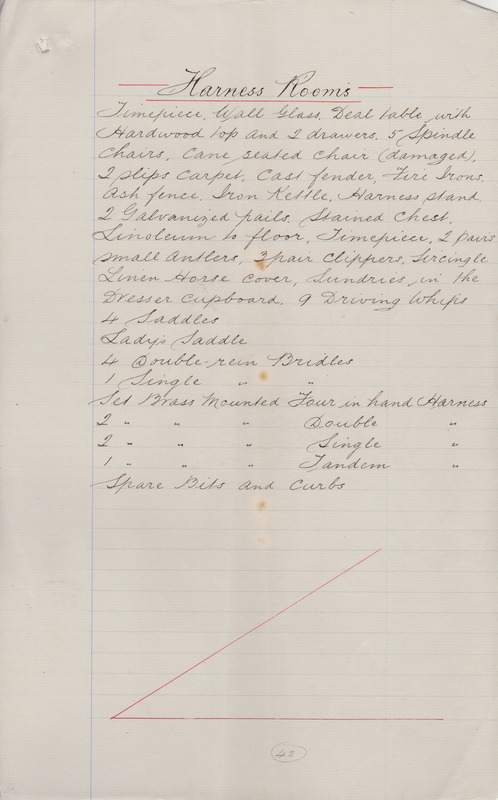 Harness Rooms
Timepiece, Wall Glass, Deal table with
Hardwood top and 2 drawers, 5 Spindle
Chairs, Cane seated chair (damaged),
2 slips Carpet, Cast fender, Fire Irons,
Ash fence, Iron Kettle, Harness stand
2 Galvanized pails, Stained Chest,
Linoleum to floor, Timepiece, 2 pairs
small Antlers, 3 pair Clippers, Sircingle
Linen Horse Cover, Sundries, in the
Dresser Cupboard. 9 Driving Whips
4 Saddles
Lady's Saddle
4 Double-rein Bridles
1 Single " "
Set Brass Mounted Four in hand Harness
2 " " " Double "
2 " " " Single "
1 " " " Tandem "
Spare Bits and Curbs
42